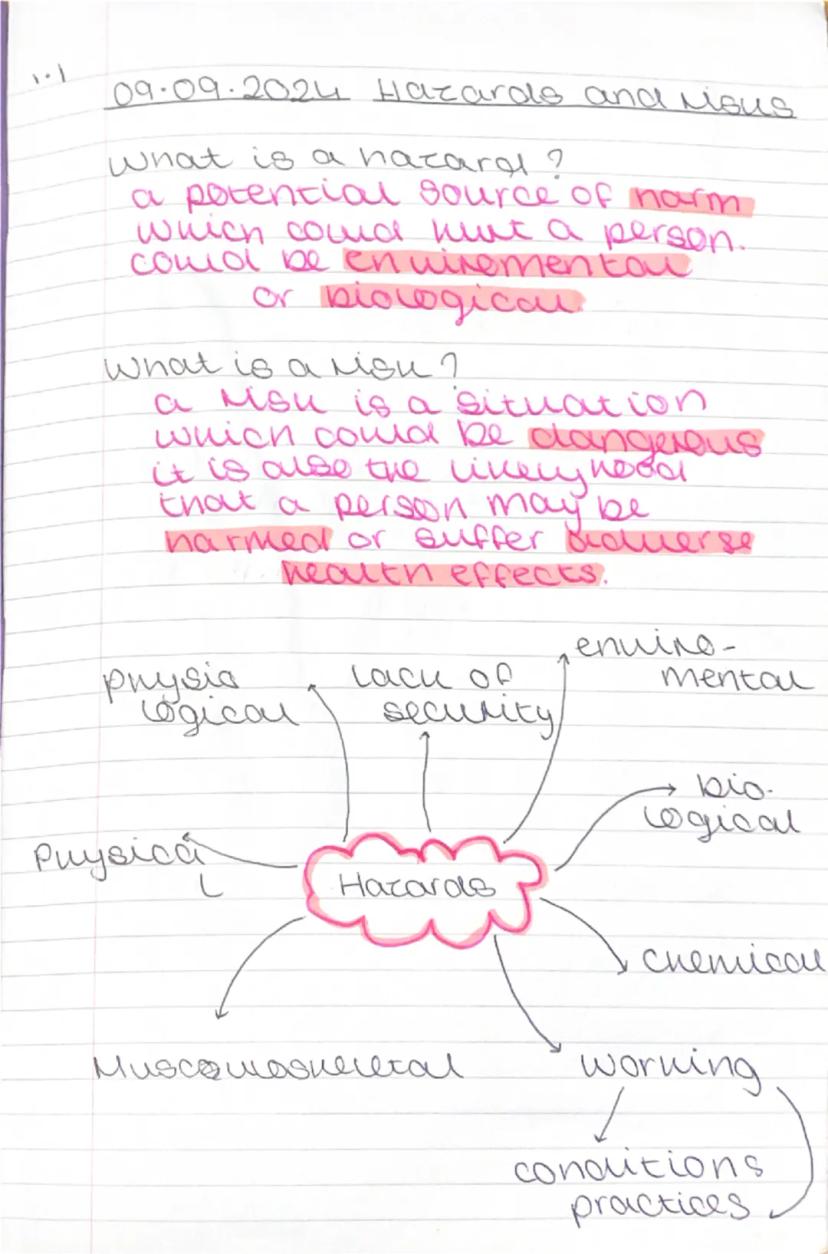 1.1
09.09.2024 Hazards and risks
What is a hazard?
a potential source of harm
which could hurt a person.
could be enviromental
or biological
What is a risk?
a risk is a situation
which could be dangerous
it is also the likelyhood
that a person may be
harmed or suffer adverse
health effects.
enviro-
mental
physio
logical
lack of
security
bio-
logical
physica
l
Hazards
chemical
Musculoskeletal
working
conditions
practices